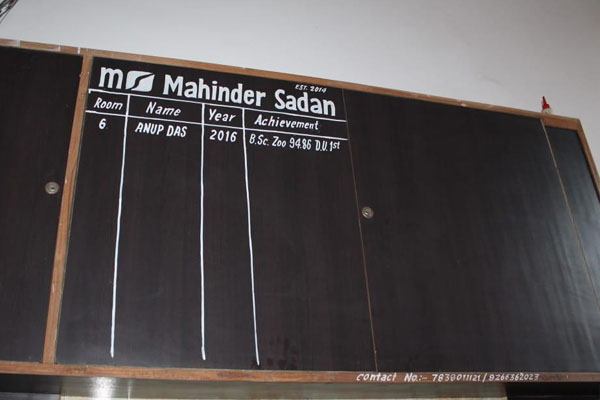 EST. 2014
m Mahinder Sadan
Room Name Year Achievement
6 ANUP DAS 2016 B.Sc. Zoo 94.86 D.U. 1st
contact No:- 7839011121/9266362023